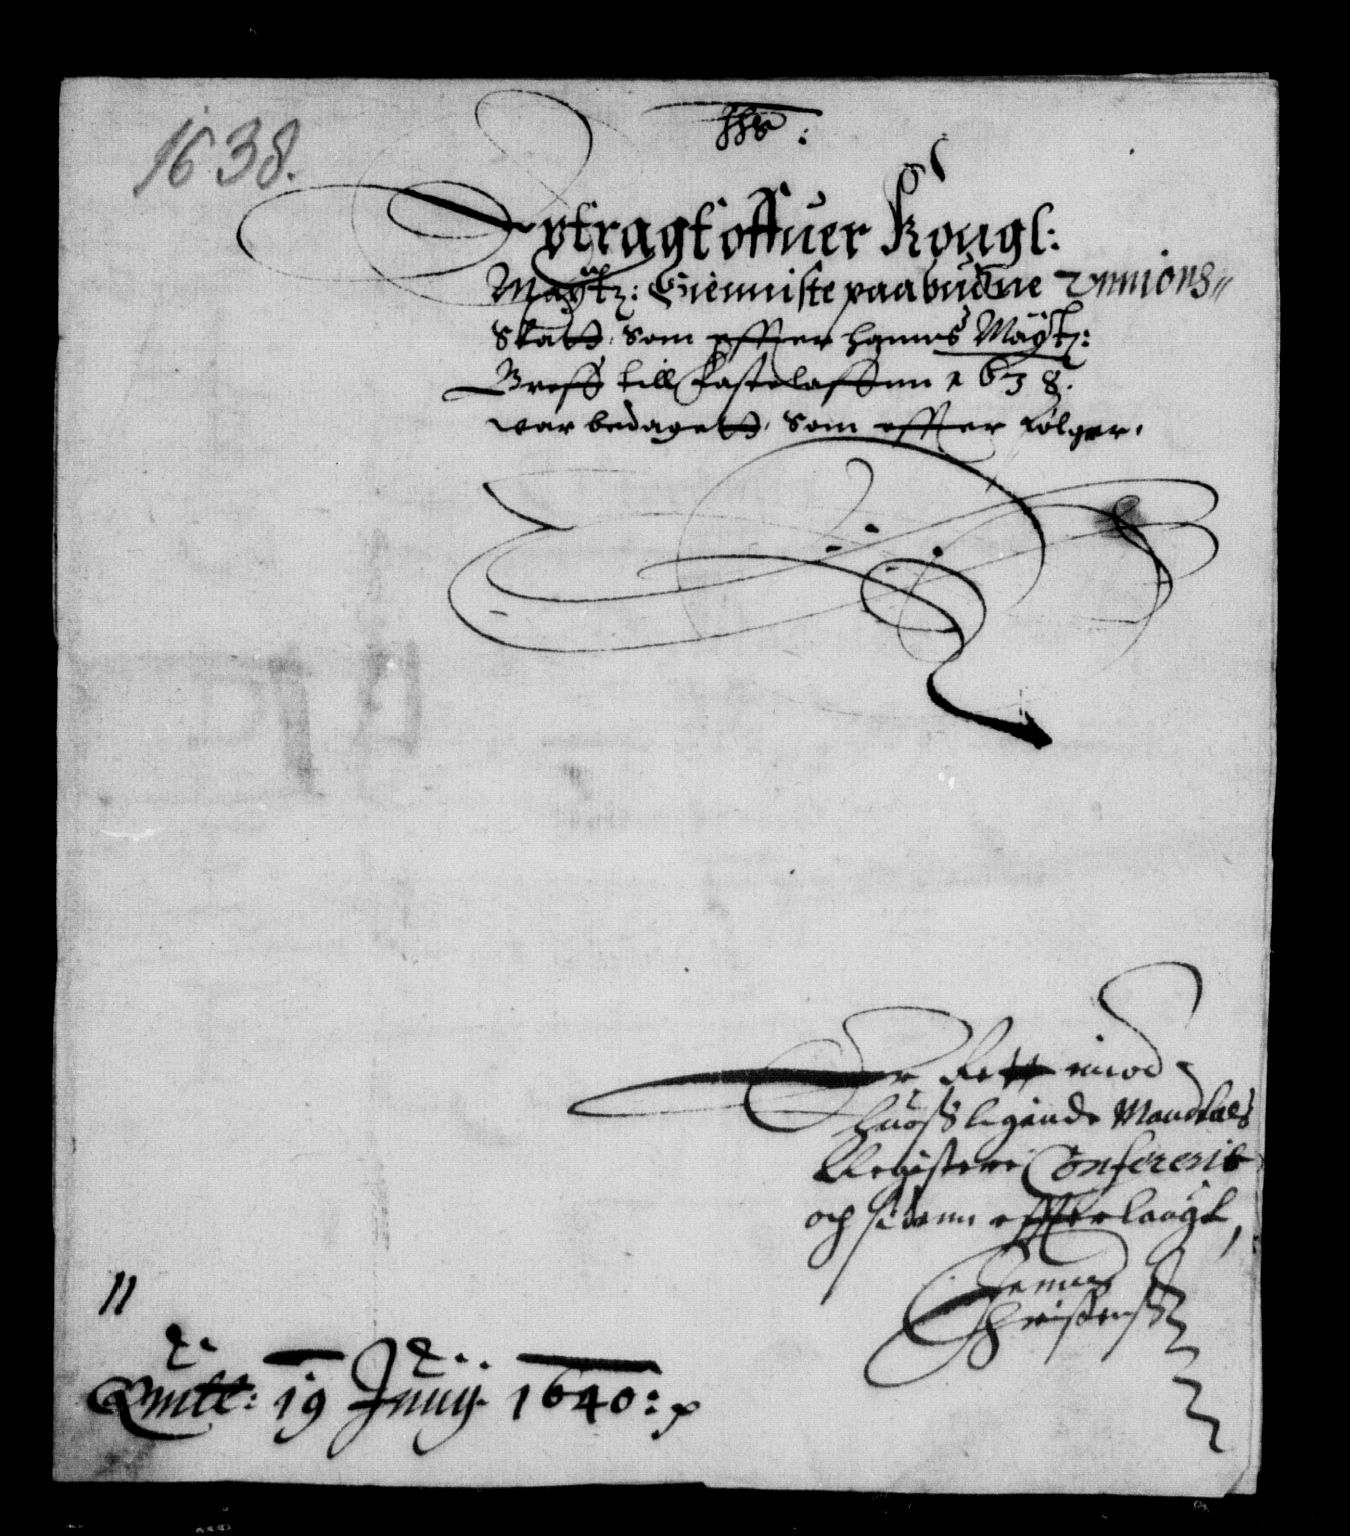 1638.
Jhs:
Vdtragt offuer Kongl:
Maÿtz: Gienniste paabudne Unnions
Skatt, som effter hanns Maÿtz:
Breff till Fastelaffuen 1638.
war bedagett, som effter følger.
Er Rett imod
huoss ligende Mandtals
Registere Confererit
och sidenn effterlaagt,
Hannes
Christenss
11
Quitt: 19 Junij 1640: